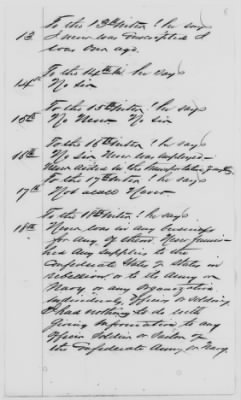 To the 13th Inter! he says
13 I never was conscripted I
was over age.
To the 14th In he says
14th No Sir
To the 15th Inter! he says
15th No Never No Sir
To the 16th Inter! he says
16th No Sir Never was employed
Never aided in the transportation
To the 17th Inter! he says
17th Not atall Never
To the 18th Inter! he says
18th Never was in any business
for any of them Never furnis
hed any supplies to the
Confederate State or States in
rebellion, or to the Army or
Navy or any organization
individuals, Officers or Soldiers,
I had nothing to do with
giving information to any
Officer Soldier or Sailor of
the Confederate Army or Navy.